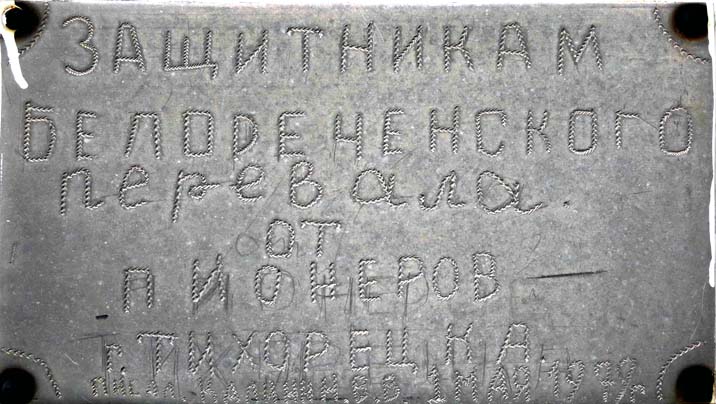 ЗАЩИТНИКАМ
БЕЛОРЕЧЕНСКОГО
перевала.
ОТ
ПИОНЕРОВ
Г. ТИХОРЕЦКА
1 МАЯ 1978г.